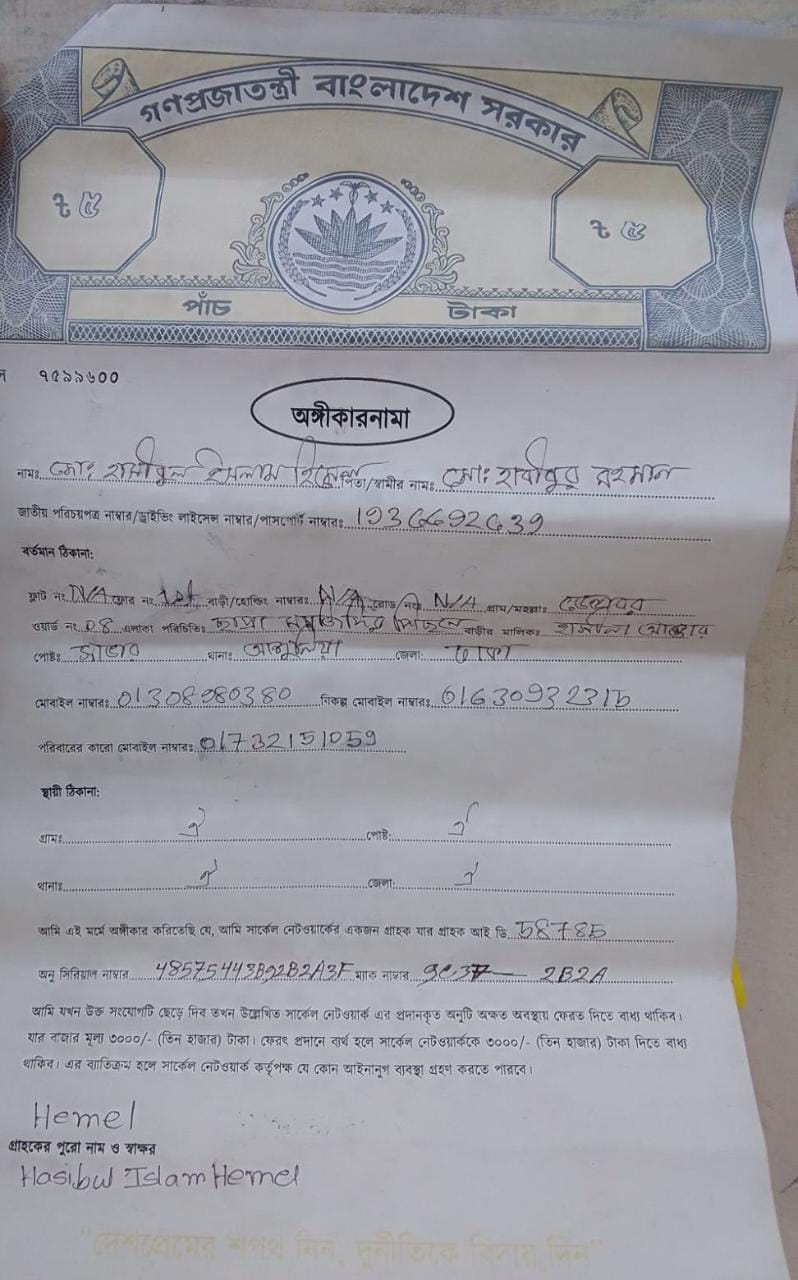 গণপ্রজাতন্ত্রী বাংলাদেশ সরকার
৳ ৫ ৳ ৫
পাঁচ টাকা
৭৫৯৯৬০০
অঙ্গীকারনামা
নামঃ মোঃ হাসীবুল ইসলাম হিমেল পিতা/স্বামীর নামঃ মোঃ হাবীবুর রহমান
জাতীয় পরিচয়পত্র নাম্বার/ড্রাইভিং লাইসেন্স নাম্বার/পাসপোর্ট নাম্বারঃ
বর্তমান ঠিকানা:
ফ্লাট নং N/A ফ্লোর নং 1st বাড়ী/হোল্ডিং নাম্বারঃ N/A রোড নং N/A গ্রাম/মহল্লাঃ
ওয়ার্ড নং 08 এলাকা পরিচিতিঃ মসজিদের পিছনে বাড়ীর মালিকঃ আক্তার
পোষ্টঃ সাভার থানাঃ আশুলিয়া জেলা: ঢাকা
মোবাইল নাম্বারঃ 01308980380 বিকল্প মোবাইল নাম্বারঃ
পরিবারের কারো মোবাইল নাম্বারঃ 01732151059
স্থায়ী ঠিকানা:
গ্রামঃ ঐ পোষ্ট: ঐ
থানাঃ ঐ জেলা: ঐ
আমি এই মর্মে অঙ্গীকার করিতেছি যে, আমি সার্কেল নেটওয়ার্কের একজন গ্রাহক যার গ্রাহক আই ডি
অনু সিরিয়াল নাম্বার 48575443B92B2A3F ম্যাক নাম্বার 2B2A
আমি যখন উক্ত সংযোগটি ছেড়ে দিব তখন উল্লেখিত সার্কেল নেটওয়ার্ক এর প্রদানকৃত অনুটি অক্ষত অবস্থায় ফেরত দিতে বাধ্য থাকিব।
যার বাজার মূল্য ৩০০০/- (তিন হাজার) টাকা। ফেরৎ প্রদানে ব্যর্থ হলে সার্কেল নেটওয়ার্ককে ৩০০০/- (তিন হাজার) টাকা দিতে বাধ্য
থাকিব। এর ব্যতিক্রম হলে সার্কেল নেটওয়ার্ক কর্তৃপক্ষ যে কোন আইনানুগ ব্যবস্থা গ্রহণ করতে পারবে।
Hemel
গ্রাহকের পুরো নাম ও স্বাক্ষর
Hasibul Islam Hemel
"দেশপ্রেমের শপথ নিন, দুর্নীতিকে বিদায় দিন"